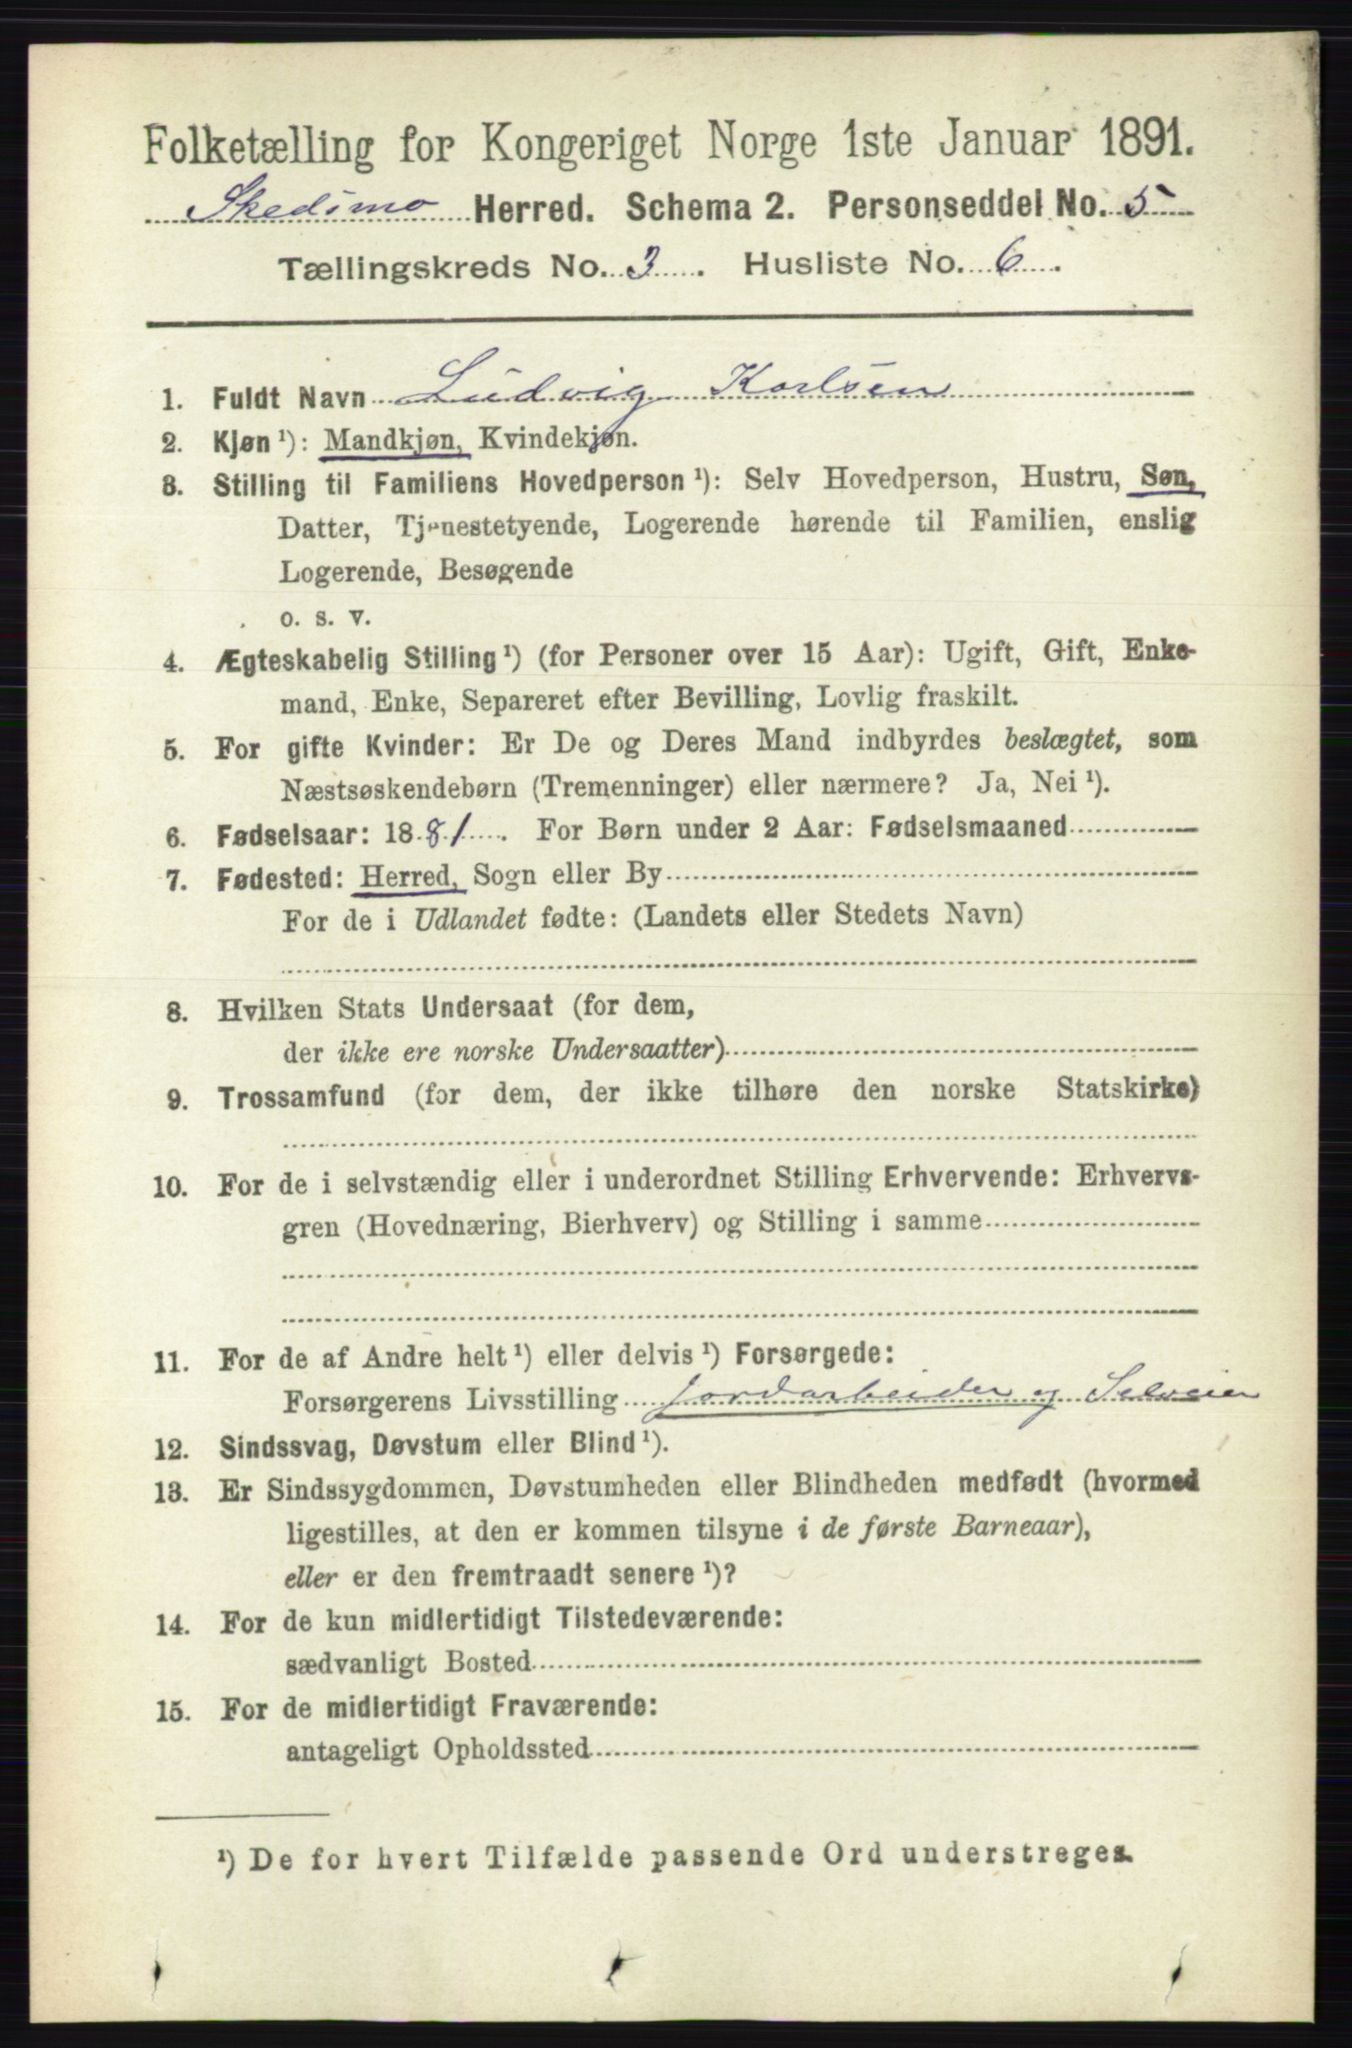 Folketælling for Kongeriget Norge 1ste Januar 1891.
Skedsmo Herred. Schema 2. Personseddel No. 5
Tællingskreds No. 3. Husliste No. 6.
1. Fuldt Navn Ludvig Karlsen
2. Kjøn ¹): Mandkjøn, Kvindekjøn.
3. Stilling til Familiens Hovedperson ¹): Selv Hovedperson, Hustru, Søn,
Datter, Tjenestetyende, Logerende hørende til Familien, enslig
Logerende, Besøgende
o. s. v.
4. Ægteskabelig Stilling ¹) (for Personer over 15 Aar): Ugift, Gift, Enke-
mand, Enke, Separeret efter Bevilling, Lovlig fraskilt.
5. For gifte Kvinder: Er De og Deres Mand indbyrdes beslægtet, som
Næstsøskendebørn (Tremenninger) eller nærmere? Ja, Nei ¹).
6. Fødselsaar: 1881. For Børn under 2 Aar: Fødselsmaaned
7. Fødested: Herred, Sogn eller By
For de i Udlandet fødte: (Landets eller Stedets Navn)
8. Hvilken Stats Undersaat (for dem,
der ikke ere norske Undersaatter)
9. Trossamfund (for dem, der ikke tilhøre den norske Statskirke)
10. For de i selvstændig eller i underordnet Stilling Erhvervende: Erhvervs-
gren (Hovednæring, Bierhverv) og Stilling i samme
11. For de af Andre helt ¹) eller delvis ¹) Forsørgede:
Forsørgerens Livsstilling Jordarbeider og Selveier
12. Sindssvag, Døvstum eller Blind ¹).
13. Er Sindssygdommen, Døvstumheden eller Blindheden medfødt (hvormed
ligestilles, at den er kommen tilsyne i de første Barneaar),
eller er den fremtraadt senere ¹)?
14. For de kun midlertidigt Tilstedeværende:
sædvanligt Bosted
15. For de midlertidigt Fraværende:
antageligt Opholdssted
¹) De for hvert Tilfælde passende Ord understreges.